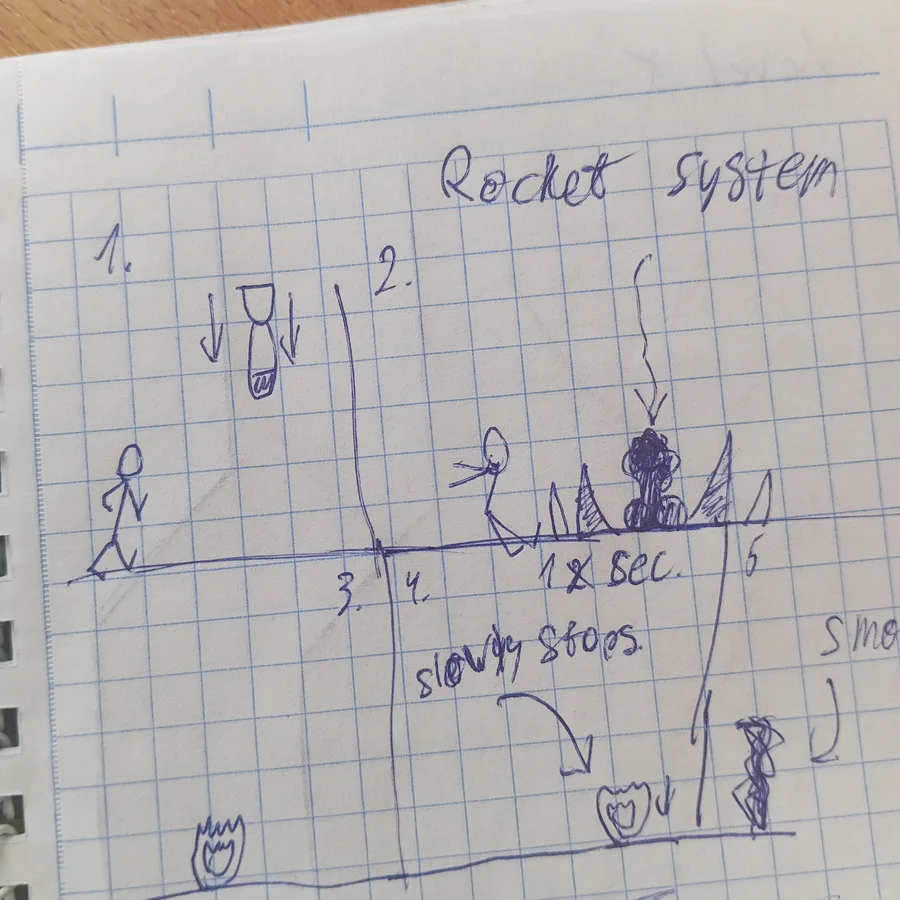 Rocket system
1.
2.
1 sec.
3.
4.
5
slowly stops.
smo